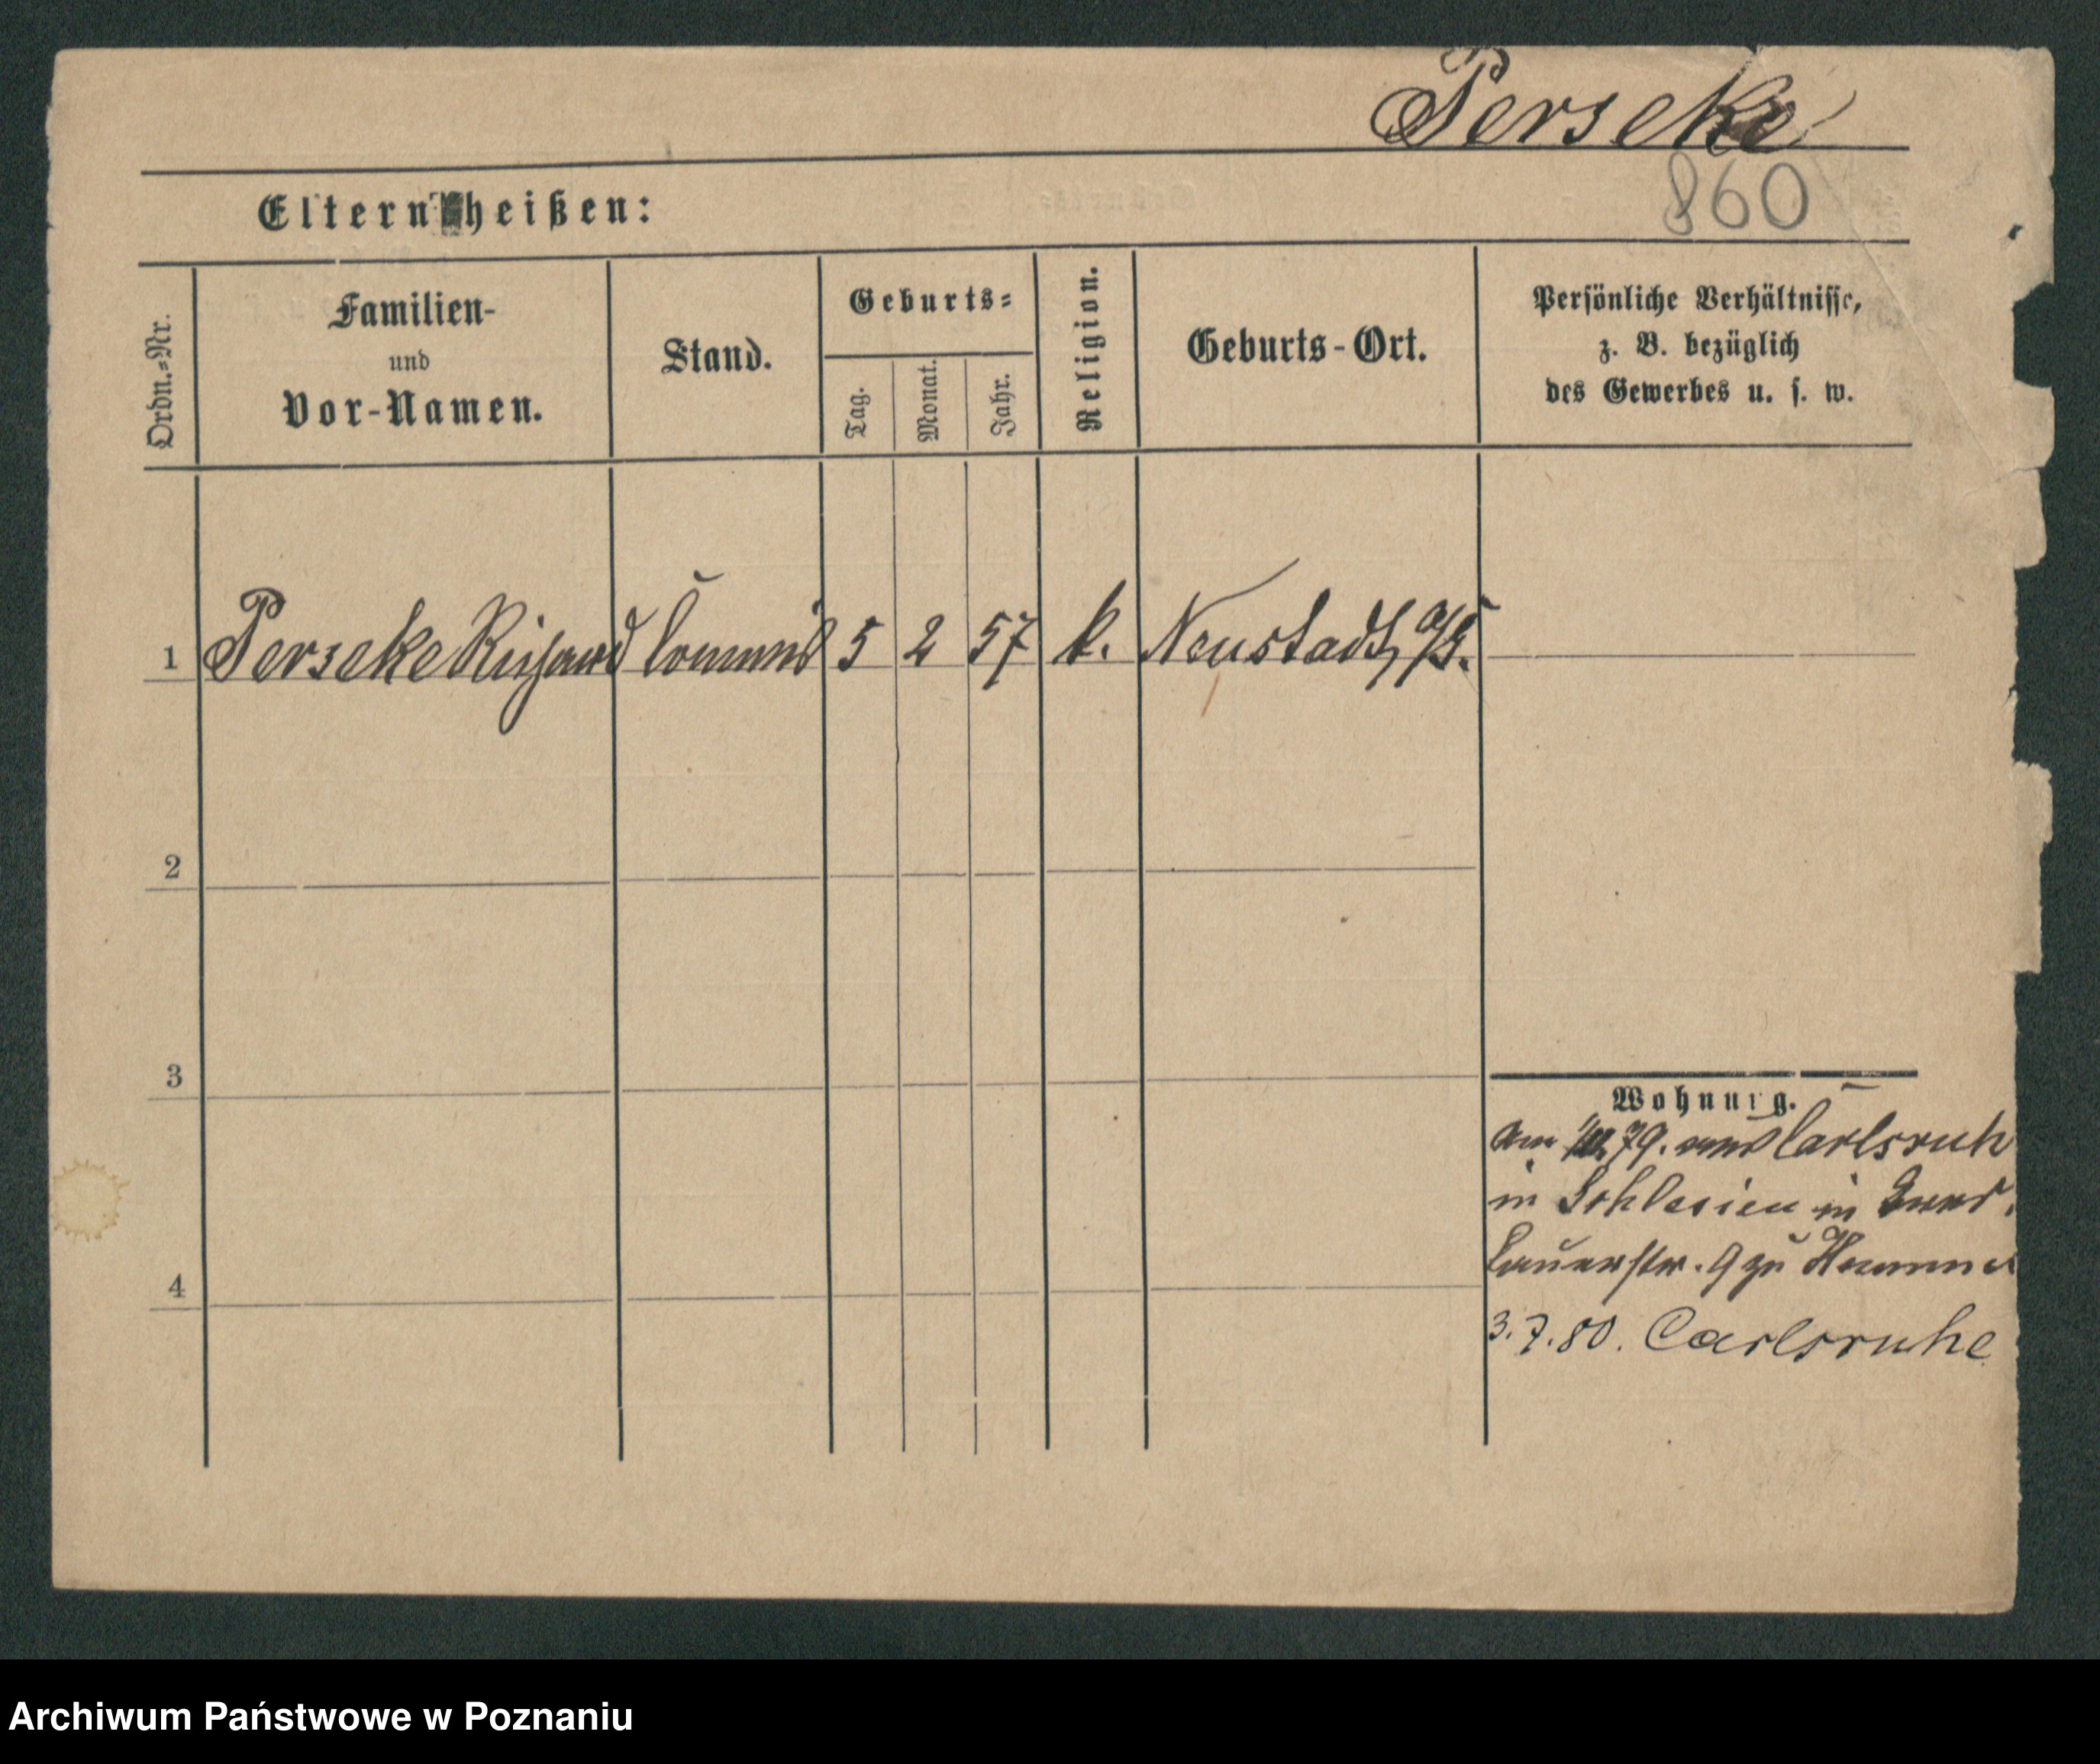 Perseke
860
Eltern heißen:
Ordn.=Nr.
Familien-
und
Vor-Namen.
Stand.
Geburts=
Tag.
Monat.
Jahr.
Religion.
Geburts-Ort.
Persönliche Verhältnisse,
z. B. bezüglich
des Gewerbes u. s. w.
1 Perseke Richard Commis 5 2 57 k. Neustadt, O/S.
2
3
4
Wohnung.
am 79. Carlsruh
in Schlesien in
9 zu
3.7.80. Carlsruhe
Archiwum Państwowe w Poznaniu